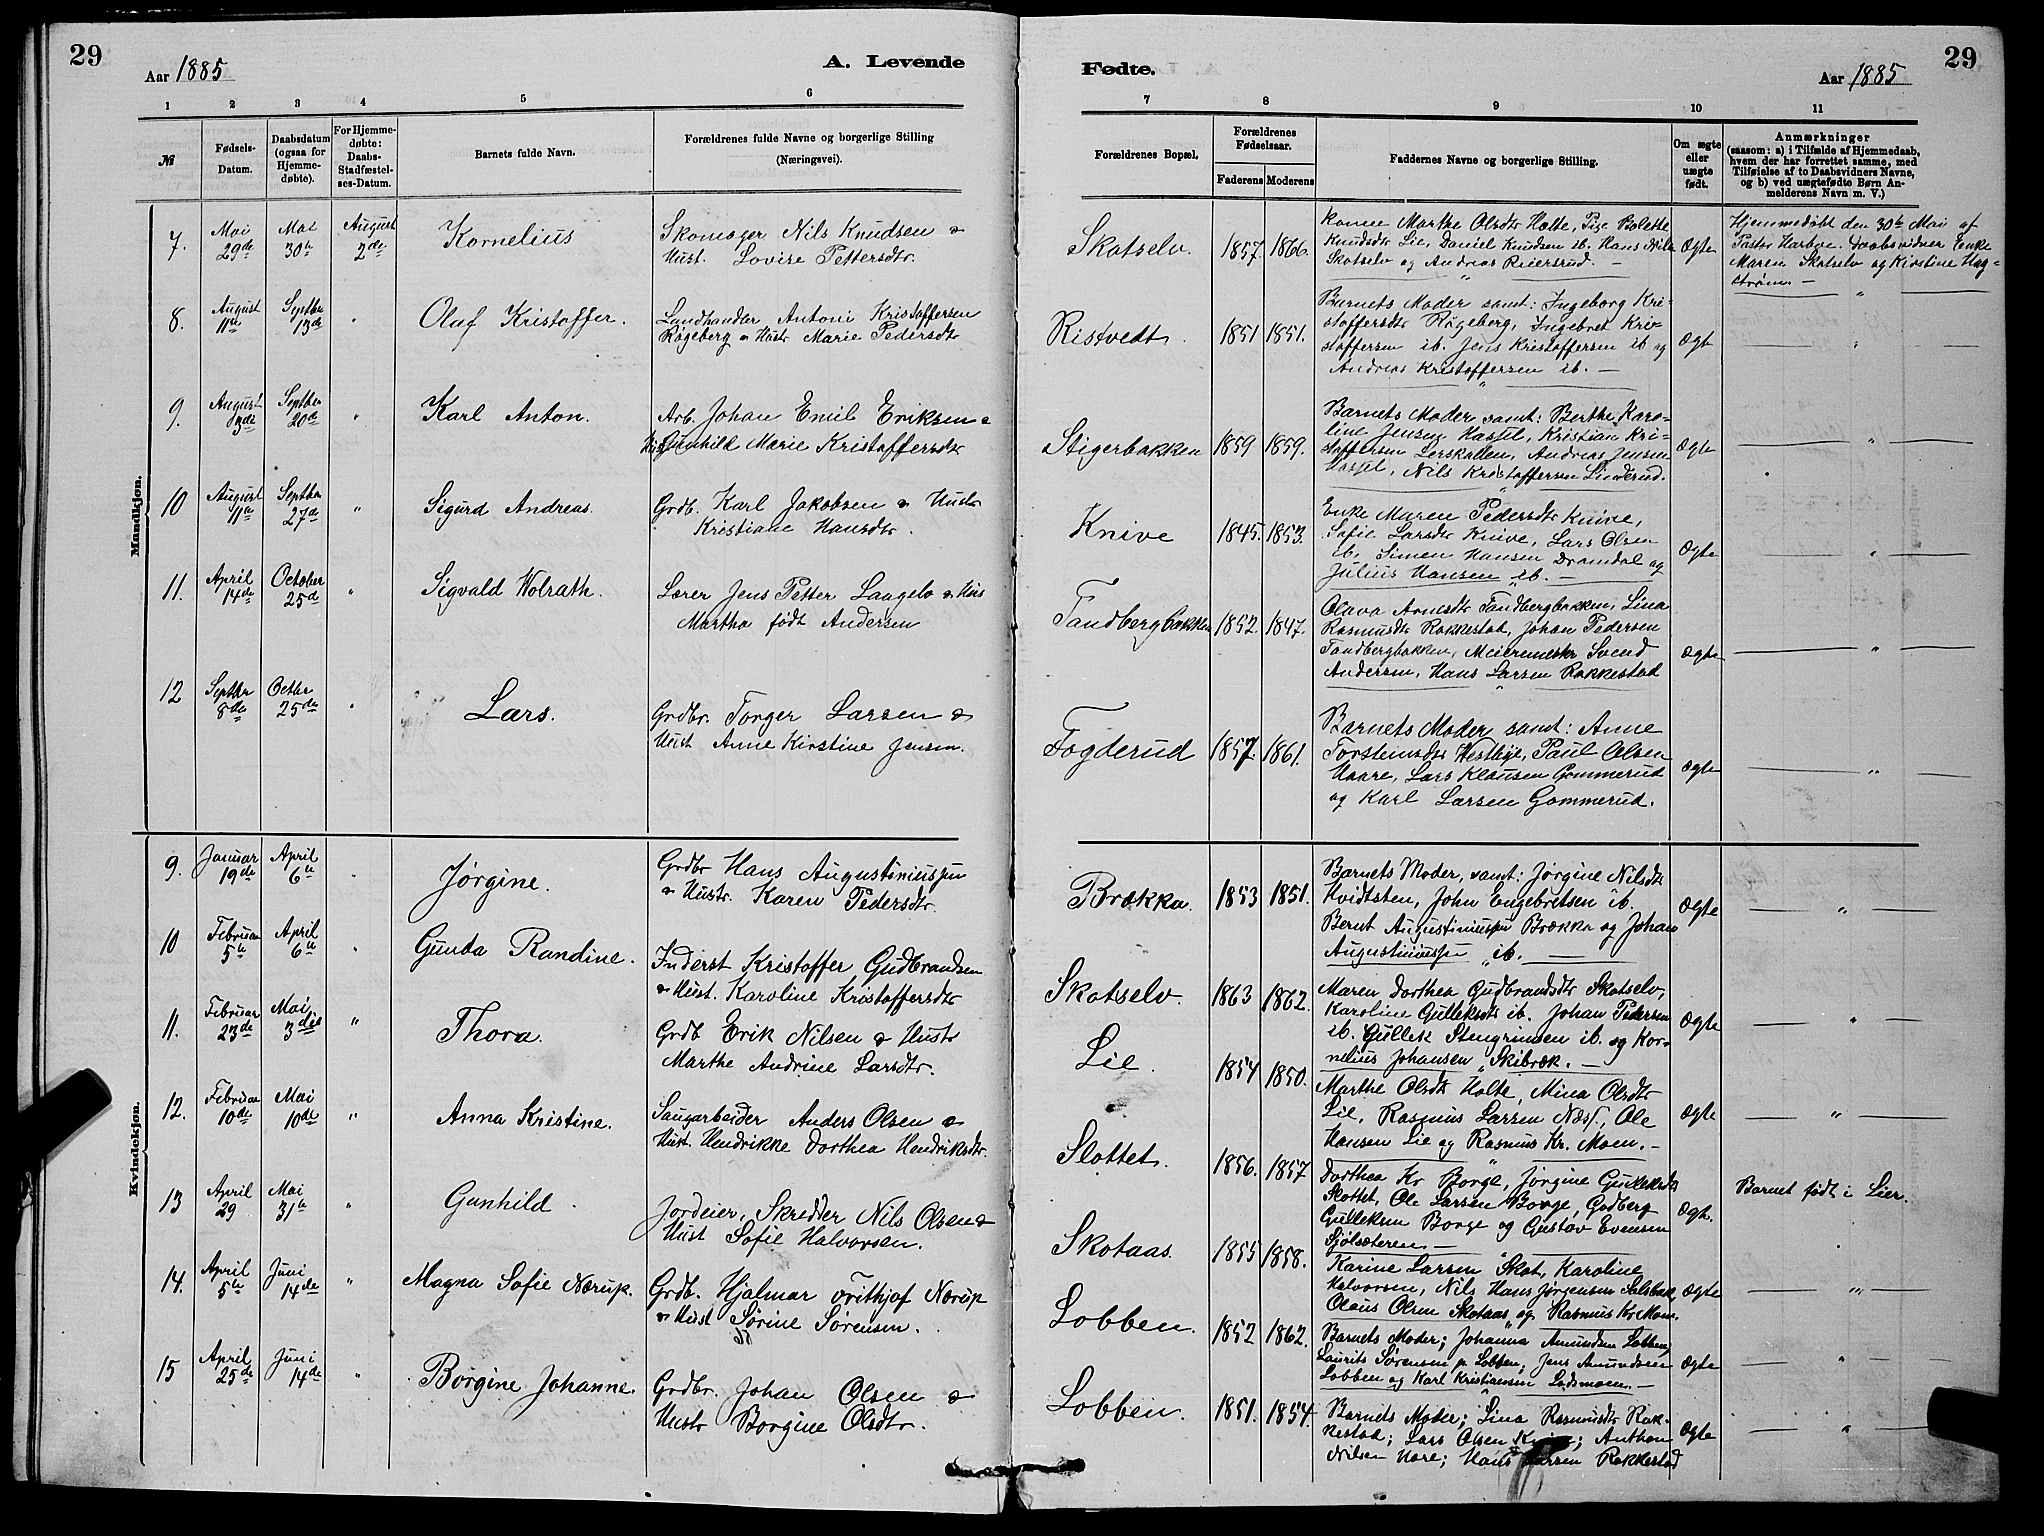 29
Aar 1885
A. Levende
1 2 3 4 5 6
№
Fødsels-
Datum.
Daabsdatum
(ogsaa for
Hjemme-
døbte).
For Hjemme-
døbte:
Daabs-
Stadfæstel-
ses-Datum.
Barnets fulde Navn.
Forældrenes fulde Navne og borgerlige Stilling
(Næringsvei).
Mandkjøn.
7. Mai 29de Mai 30te August 2den Kornelius
Skomager Nils Knudsen &
Hust. Lovise Pettersdtr.
8. August 11te Septbr 13de " Olaf Kristoffer.
Landhandler Antoni Kristoffersen
Røgeberg & Hustr Marie Pedersdtr
9. August 3de Septber 20de " Karl Anton.
Arb. Johan Emil Eriksen &
Hust Gunhild Marie Kristoffersdtr
10 August 11te Septbr 27de " Sigurd Andreas.
Grdb. Karl Jakobsen & Hustr
Kristiane Hansdtr.
11. April 14de October 25de " Sigvald Wolrath.
Lærer Jens Petter Laagelv & Hus
Martha født Andersen
12 Septbr 8de Octbr 25de " Lars.
Grdbr. Torger Larsen &
Hust Anne Kirstine Jensen.
Kvindekjøn.
9. Januar 19de April 6te " Jørgine.
Grdbr Hans Augustiniussen
& Hustr. Karen Pedersdtr.
10 Februar 5te April 6te " Gunda Randine.
Inderst Kristoffer Gudbrandsen
& Hust. Karoline Kristoffersdtr
11. Februar 23de Mai 3die " Thora.
Grdb Erik Nilsen & Hustr
Marthe Andrine Larsdtr.
12. Februar 10de Mai 10de " Anna Kristine.
Saugarbeider Anders Olsen &
Hust. Hendrikke Dorthea Hendriksdtr.
13 April 29 Mai 31te " Gunhild.
Jordeier, Skredder Nils Olsen &
Hust Sofie Halvorsen.
14. April 5te Juni 14de " Magna Sofie Nærup.
Grdb. Hjalmar Frithjof Nærup
& Hust Sørine Sørensen.
15 April 25de Juni 14de " Borgine Johanne.
Grdbr. Johan Olsen &
Hustr Borgine Olsdtr.
Fødte.
29
Aar 1885
7 8 9 10 11
Forældrenes Bopæl.
Forældrenes
Fødselsaar.
Faderens Moderens
Faddernes Navne og borgerlige Stilling.
Om ægte
eller
uægte
født.
Anmærkninger
(saasom: a) i Tilfælde af Hjemmedaab,
hvem der har forrettet samme, med
Tilføielse af to Daabsvidners Navne,
og b) ved uægtefødte Børn An-
melderens Navn m. V.)
Skotselv. 1857. 1866.
Konen Marthe Olsdtr Holte, Pige Bolette
Knudsdtr Lie, Daniel Knudsen ib. Hans Nils
Skotselv og Andreas Reiersrud. —
Ægte
Hjemmedøbt den 30te Mai af
Pastor Harboe. Daabsvidner Enke
Maren Skotselv og Kirstine Hag-
strøm. —
Ristvedt. 1851 1851.
Barnets Moder samt: Ingeborg Kri-
stoffersdtr Røgeberg, Ingebret Kri-
stoffersen ib. Jens Kristoffersen ib og
Andreas Kristoffersen ib. —
Ægte
Stigerbakken 1859 1859.
Barnets Moder, samt: Berthe Karo-
line Jensen Hassel, Kristian Kri-
stoffersen Lerskallen, Andreas Jensen
Hassel, Nils Kristoffersen Linderud.
Ægte
Knive 1845. 1853.
Enke Maren Pedersdtr Knive,
Sofie Larsdtr Knive, Lars Olsen
ib. Simen Hansen Dramdal og
Julius Hansen ib. —
Ægte
Tandbergbakken 1852. 1847.
Olava Arnesdtr Tandbergbakken, Lina
Rasmusdtr Rakkestad, Johan Pedersen
Tandbergbakken, Meiermester Svend
Andersen, Hans Larsen Rakkestad
Ægte
Fogderud 1857. 1861.
Barnets Moder samt: Anne
Torstensdtr Westbye, Paul Olsen
Haare, Lars Klausen Gommerud
og Karl Larsen Gommerud.
Ægte
Brækka. 1853 1851.
Barnets Moder, samt: Jørgine Nilsdtr
Hvidtsten, John Engebretsen ib.
Bernt Augustiniussen Brækka og Johan
Augustiniussen ib. —
Ægte
Skotselv. 1863 1862.
Maren Dorthea Gudbrandsdtr Skotselv,
Karoline Gulleksdtr ib. Johan Pedersen
ib. Gullek Stengrimsen ib. og Kor-
nelius Johansen Skibræk. —
Ægte
Lie. 1854 1850.
Marthe Olsdtr Holte, Mina Olsdtr
Lie, Rasmus Larsen Næss, Ole
Hansen Lie og Rasmus Kr. Moen. —
Ægte
Slottet. 1856. 1857
Dorthea Kr Borge, Jørgine Gulleksdtr
Slottet, Ole Larsen Borge, Gudberg
Gulleksen Borge og Gustav Evensen
Sjølsæteren. —
Ægte.
Barnet født i Lier.
Skotaas. 1855 1858.
Karine Larsen Skot, Karoline
Halvorsen, Nils Hans Jørgensen
Olaus Olsen Skotaas og Rasmus Kr Moen.
Ægte
Lobben. 1852 1862.
Barnets Moder; Johanna Amundsen Lobben,
Laurits Sørensen p. Lobben; Jens Amundsen
Lobben og Karl Kristiansen Lodsmoen. —
Ægte
Lobben. 1851. 1854.
Barnets Moder; Lina Rasmusdtr Rak-
kestad; Lars Olsen Knive; Anthon
Nilsen Hore; Hans Larsen Rakkestad
Ægte